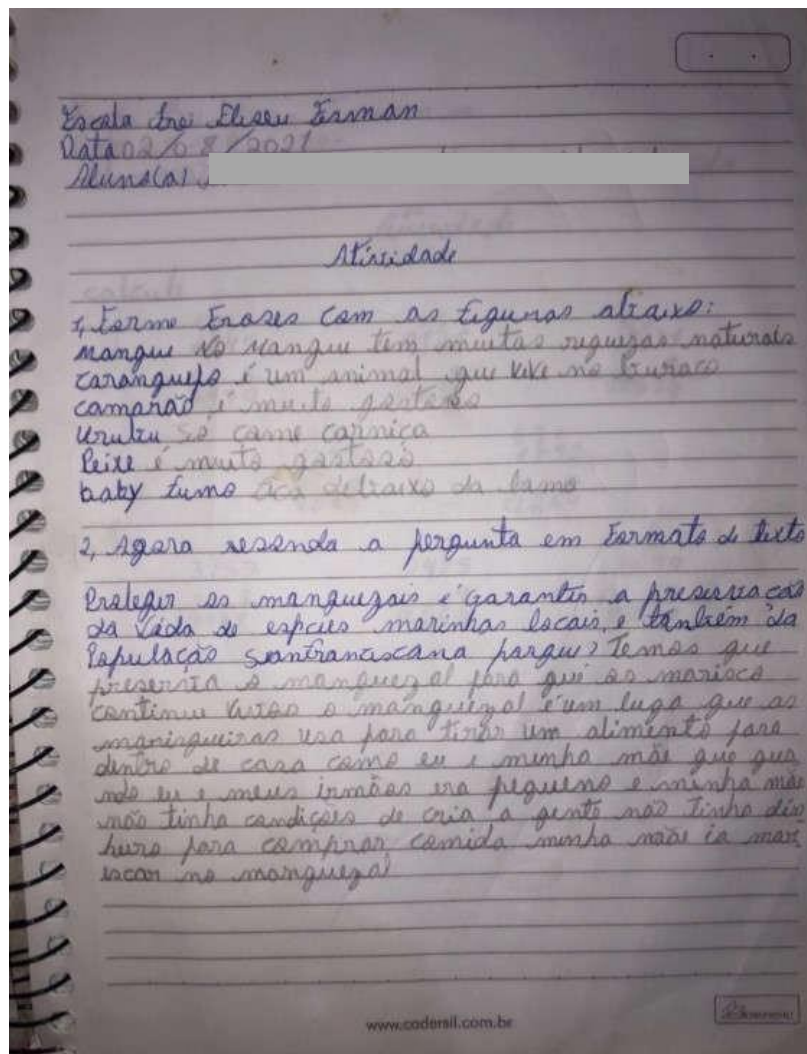 Escola Frei Eliseu Eisman
Data 02/08/2021
Aluno(a)
Atividade
1, Forme Frases com as figuras abaixo:
mangue No mangue tem muitas riquezas naturais
caranguejo é um animal que vive no buraco
camarão é muito gostoso
Urubu só come carniça
Peixe é muito gostoso
baby fumo debaixo da lama
2, Agora resonda a pergunta em Formato de texto
Proteger os manguezais é garantir a preservação
da vida de espcies marinhas locais, e também da
População sanfranciscana porque? Temos que
preserva o manguezal para que os marisco
continue vivos o manguezal é um luga que as
marisqueiras usa para tirar um alimento para
dentro de casa como eu e minha mãe que qua
ndo eu e meus irmãos era pequeno e minha mãe
não tinha condições de cria a gente não tinha din
heiro para comprar comida minha mãe ia mar
iscar no manguezal
www.cadersil.com.br